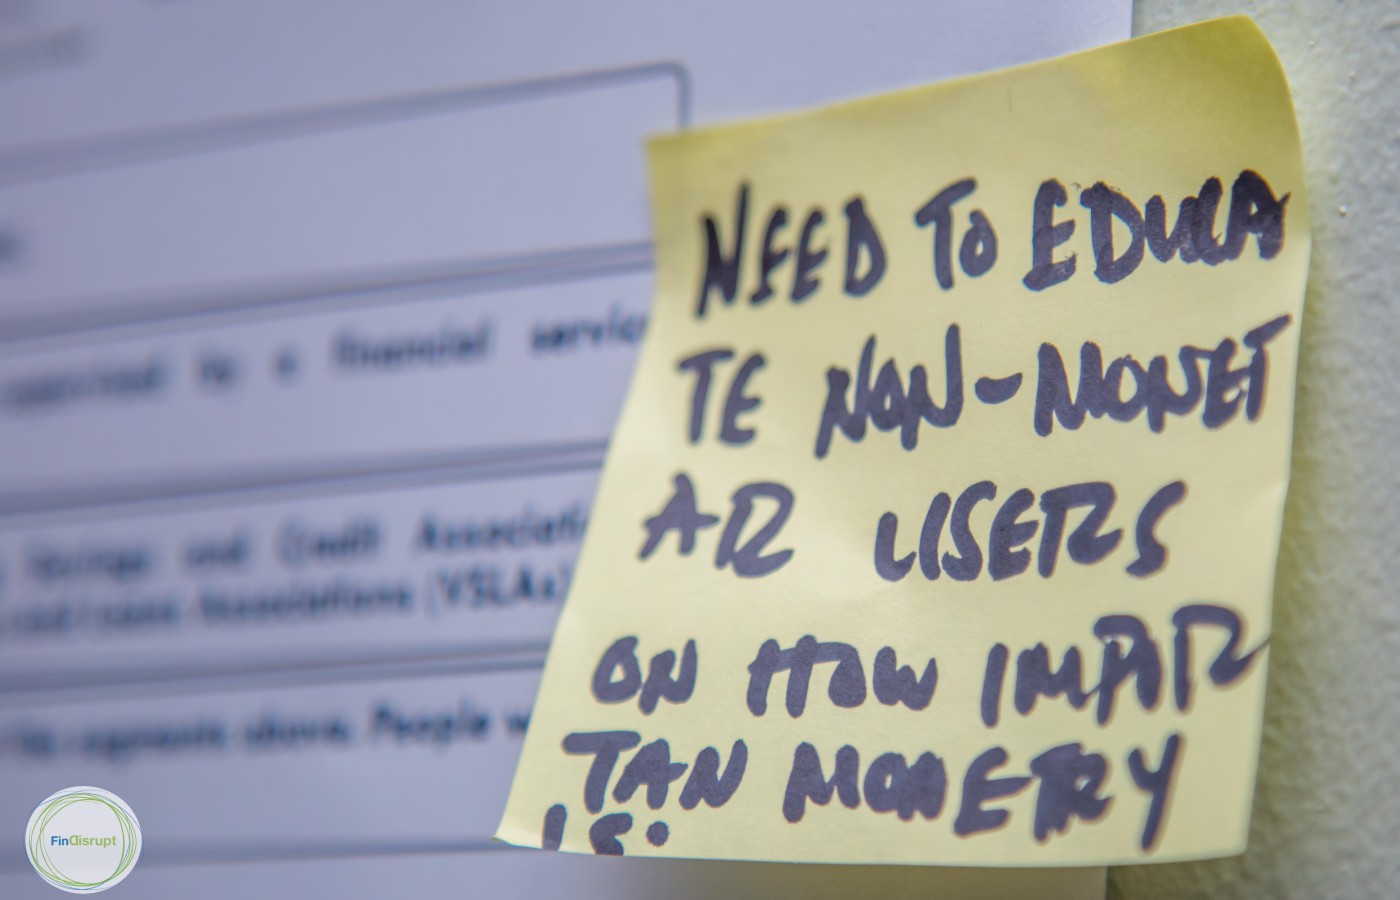 financial service
Savings and Credit Associati
and Loans Associations (VSLAs)
segments above. People w
NEED TO EDUCA
TE NON-MONET
AR USERS
ON HOW IMPOR
TAN MONERY
IS:
FinDisrupt